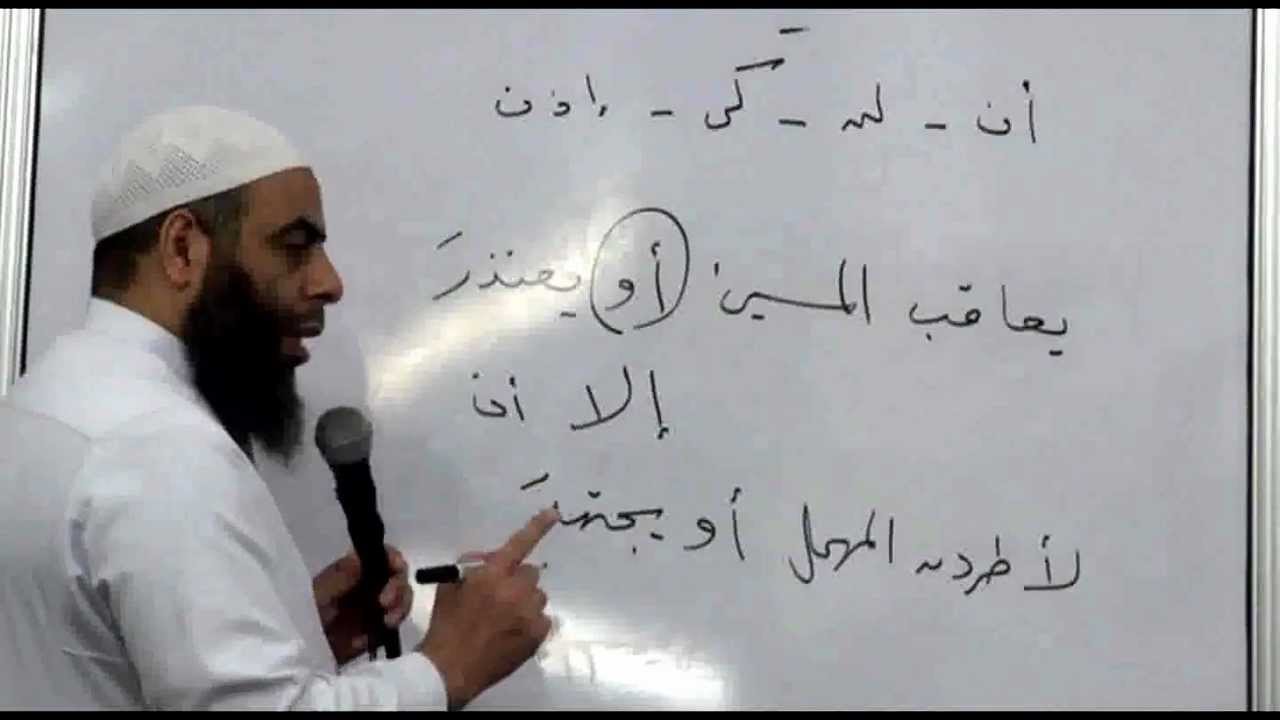 أن - لن - كَي - إذن
يعاقب المسيئ أو يعتذرَ
إلا أن
لأطردن المهمل أو يجتهدَ